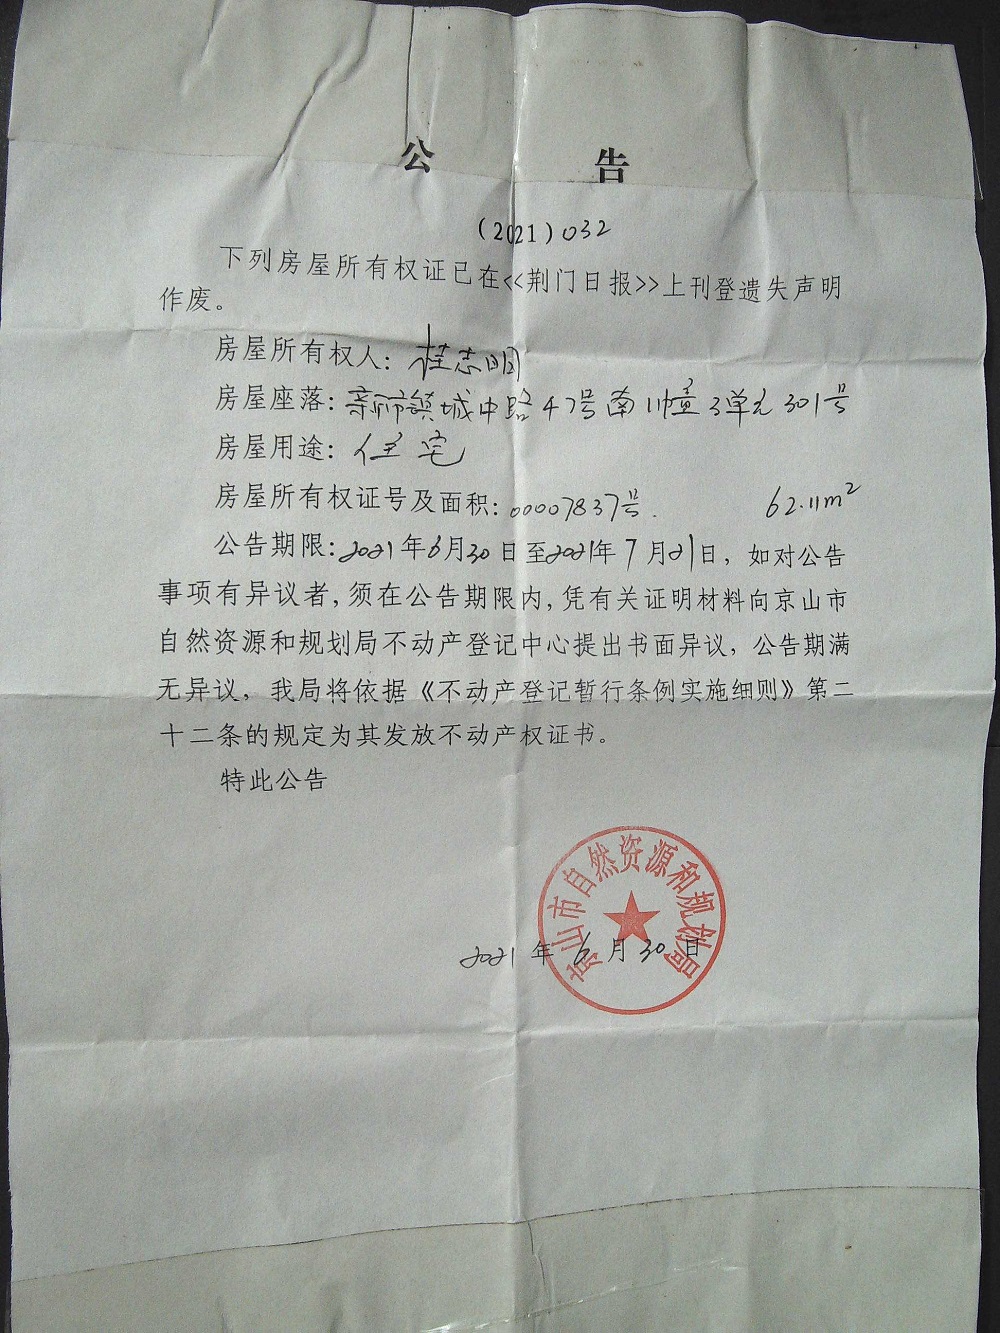 公 告
(2021)032
下列房屋所有权证已在<<荆门日报>>上刊登遗失声明
作废。
房屋所有权人：桂志明
房屋座落：镇城中路47号南川幢3单元301号
房屋用途：住宅
房屋所有权证号及面积：00007837号. 62.11m²
公告期限：2021年6月30日至2021年7月21日，如对公告
事项有异议者，须在公告期限内，凭有关证明材料向京山市
自然资源和规划局不动产登记中心提出书面异议，公告期满
无异议，我局将依据《不动产登记暂行条例实施细则》第二
十二条的规定为其发放不动产权证书。
特此公告
京山市自然资源和规划局
2021年6月30日